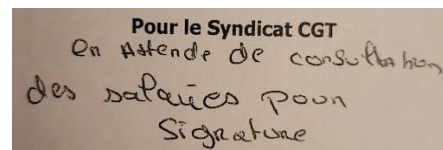 Pour le Syndicat CGT
en Attende de consultation
des salariés pour
Signature